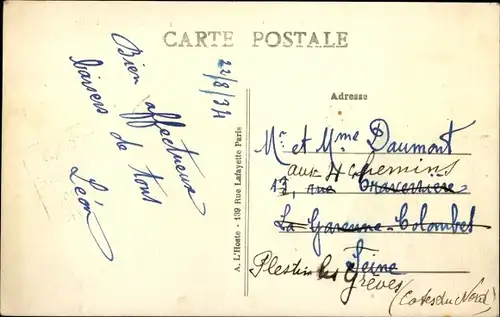 CARTE POSTALE
22/8/34
Bien affectueux
baisers de tous
Léon
A. L'Hoste - 139 Rue Lafayette Paris
Adresse
Mr et Mme Daumont
aux 4 chemins
17, rue Traversière
La Garenne-Colombes
Seine
Plestin les Grèves
(Cotes du Nord)